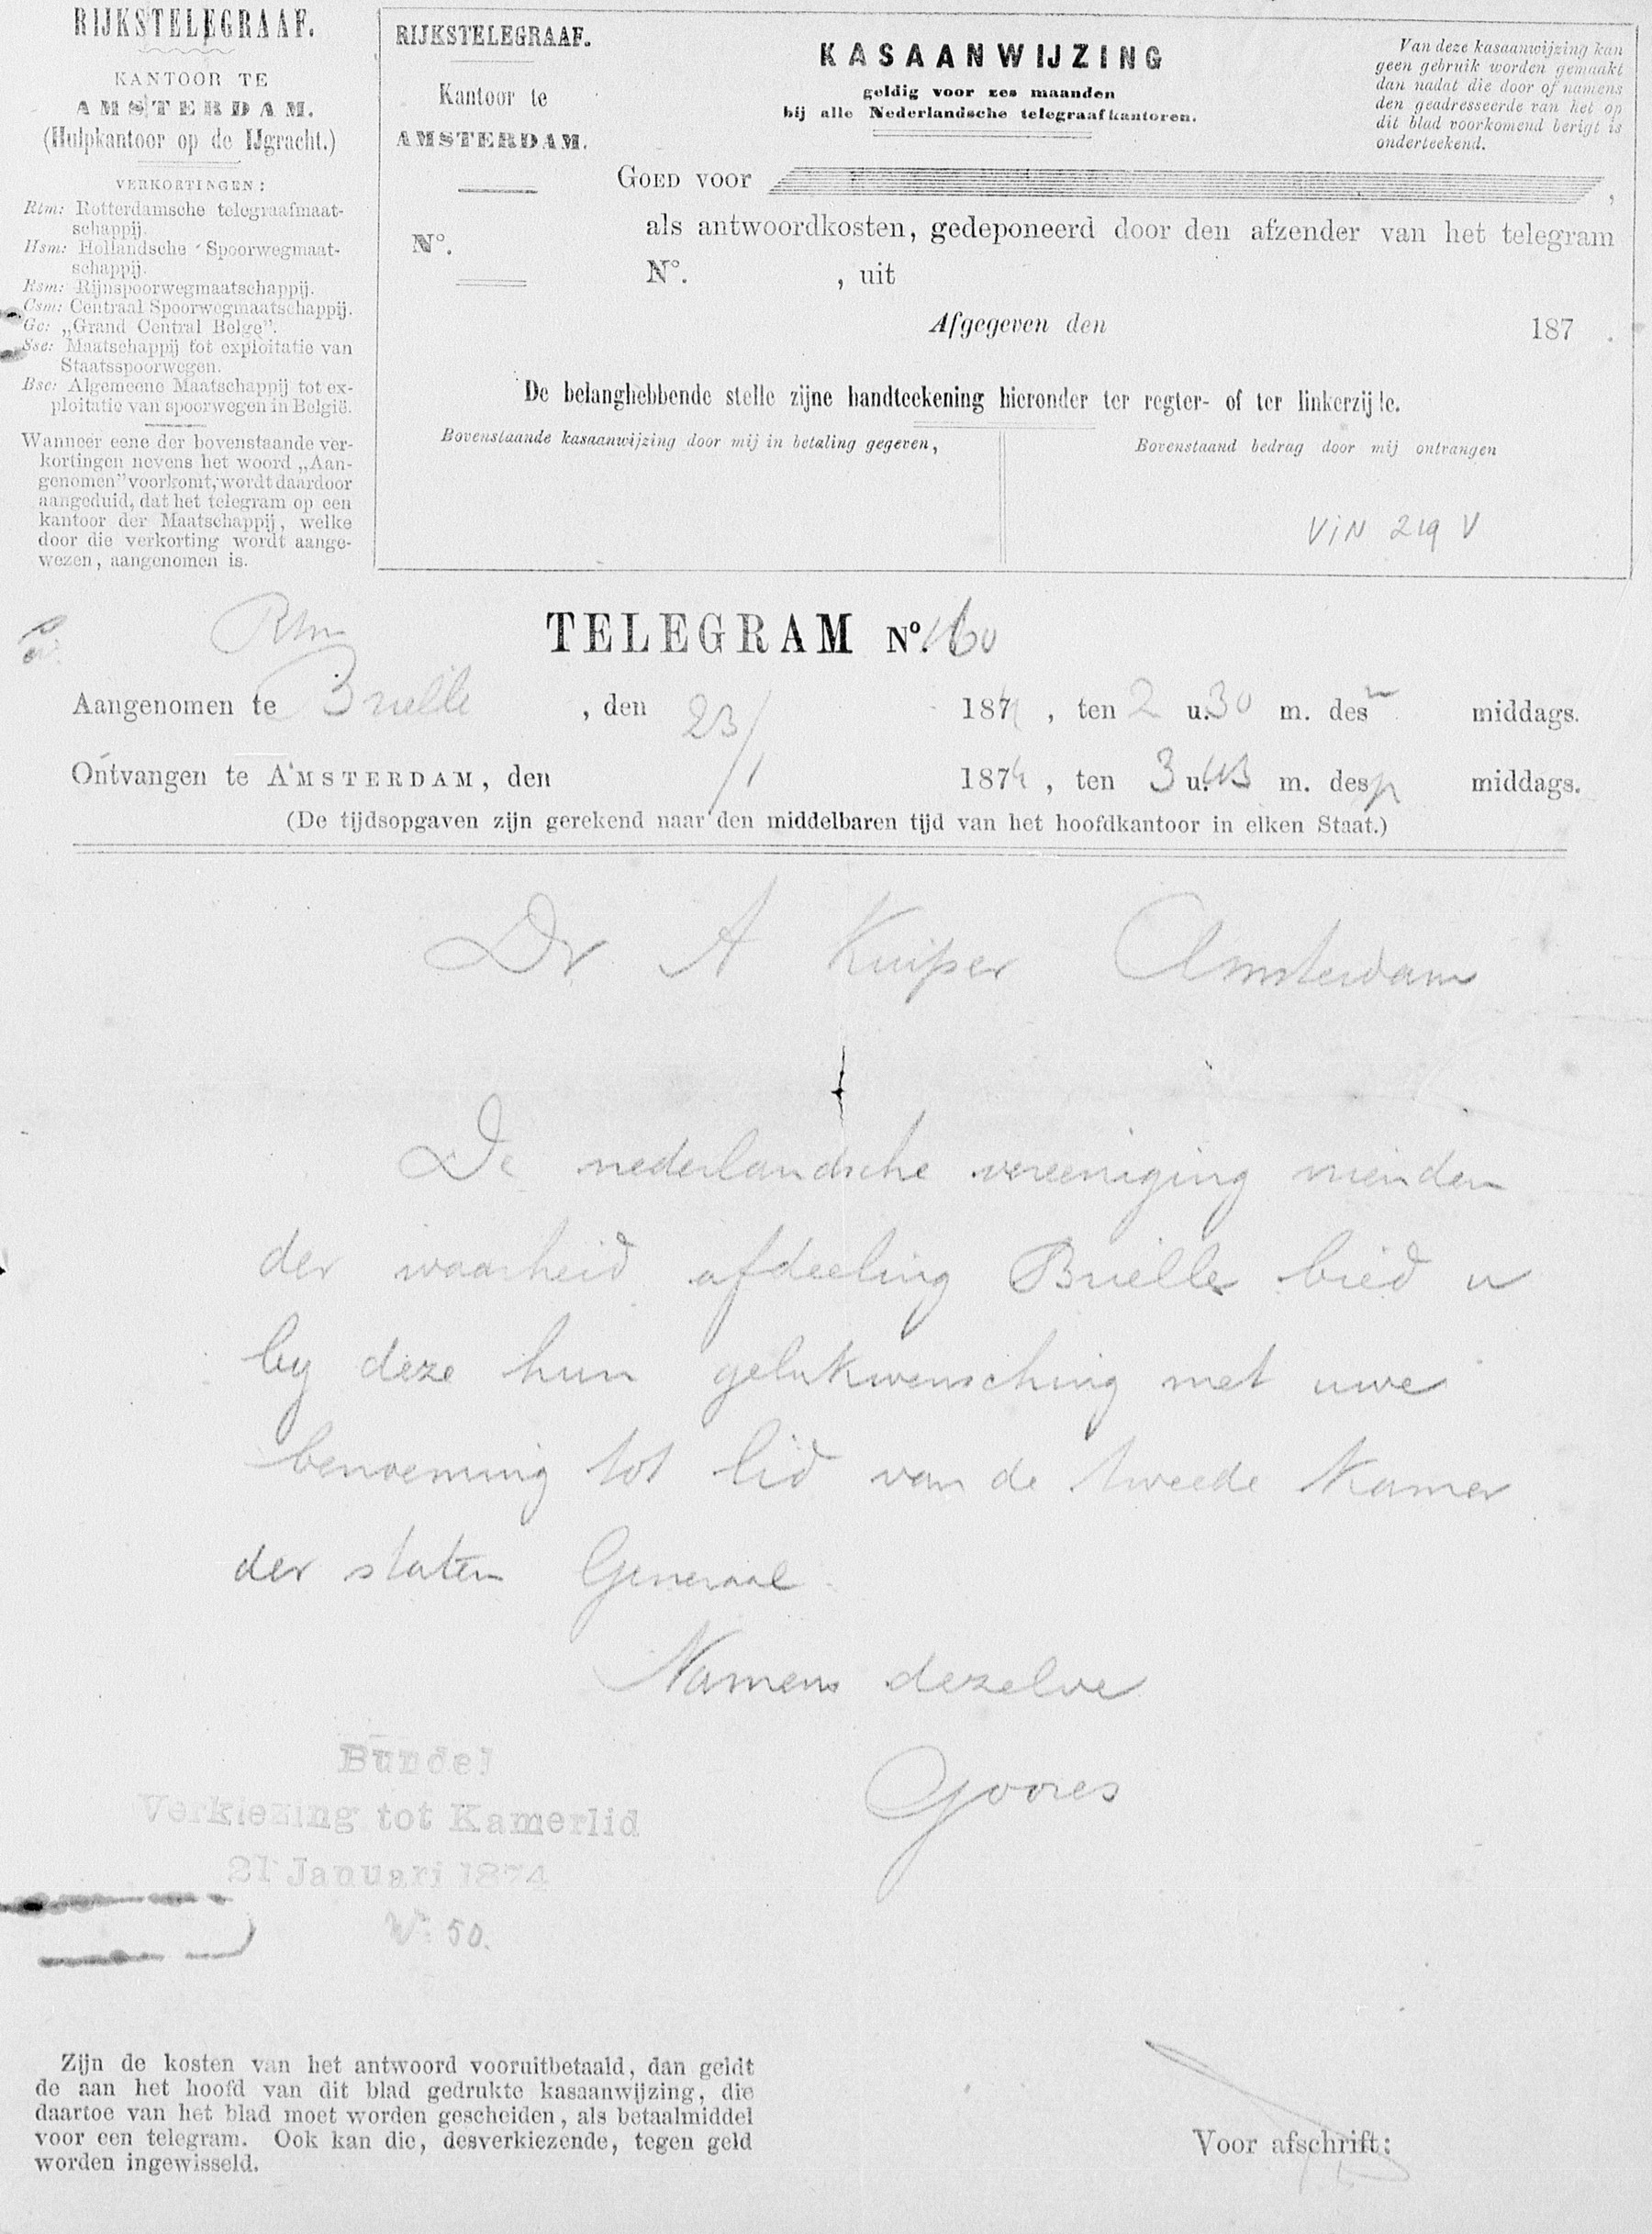 RIJKSTELEGRAAF.
KANTOOR TE
AMSTERDAM.
(Hulpkantoor op de IJgracht.)
VERKORTINGEN:
Rtm: Rotterdamsche telegraafmaat-
schappij.
Hsm: Hollandsche Spoorwegmaat-
schappij.
Rsm: Rijnspoorwegmaatschappij.
Csm: Centraal Spoorwegmaatschappij.
Gc: „Grand Central Belge".
Sse: Maatschappij tot exploitatie van
Staatsspoorwegen.
Bse: Algemeene Maatschappij tot ex-
ploitatie van spoorwegen in België.
Wanneer eene der bovenstaande ver-
kortingen nevens het woord „Aan-
genomen" voorkomt, wordt daardoor
aangeduid, dat het telegram op een
kantoor der Maatschappij, welke
door die verkorting wordt aange-
wezen, aangenomen is.
RIJKSTELEGRAAF.
Kantoor te
AMSTERDAM.
N°.
KASAANWIJZING
geldig voor zes maanden
bij alle Nederlandsche telegraafkantoren.
Van deze kasaanwijzing kan
geen gebruik worden gemaakt
dan nadat die door of namens
den geadresseerde van het op
dit blad voorkomend berigt is
onderteekend.
GOED VOOR ,
als antwoordkosten, gedeponeerd door den afzender van het telegram
N°. , uit
Afgegeven den 187 .
De belanghebbende stelle zijne handteekening hieronder ter regter- of ter linkerzijde.
Bovenstaande kasaanwijzing door mij in betaling gegeven,
Bovenstaand bedrag door mij ontvangen
ViN 219 V
Rtm
TELEGRAM N°. 160
Aangenomen te Brielle , den 23/1 1874 , ten 2 u. 30 m. des n middags.
Ontvangen te AMSTERDAM, den 1874 , ten 3 u. 43 m. des n middags.
(De tijdsopgaven zijn gerekend naar den middelbaren tijd van het hoofdkantoor in elken Staat.)
Dr A Kuiper Amsterdam
De nederlandsche vereeniging vrienden
der waarheid afdeeling Brielle bied u
by deze hun gelukwensching met uwe
benoeming tot lid van de tweede Kamer
der staten Generaal.
Namens dezelve
Goores
Bundel
Verkiezing tot Kamerlid
21 Januari 1874
N°. 50.
Zijn de kosten van het antwoord vooruitbetaald, dan geldt
de aan het hoofd van dit blad gedrukte kasaanwijzing, die
daartoe van het blad moet worden gescheiden, als betaalmiddel
voor een telegram. Ook kan die, desverkiezende, tegen geld
worden ingewisseld.
Voor afschrift: